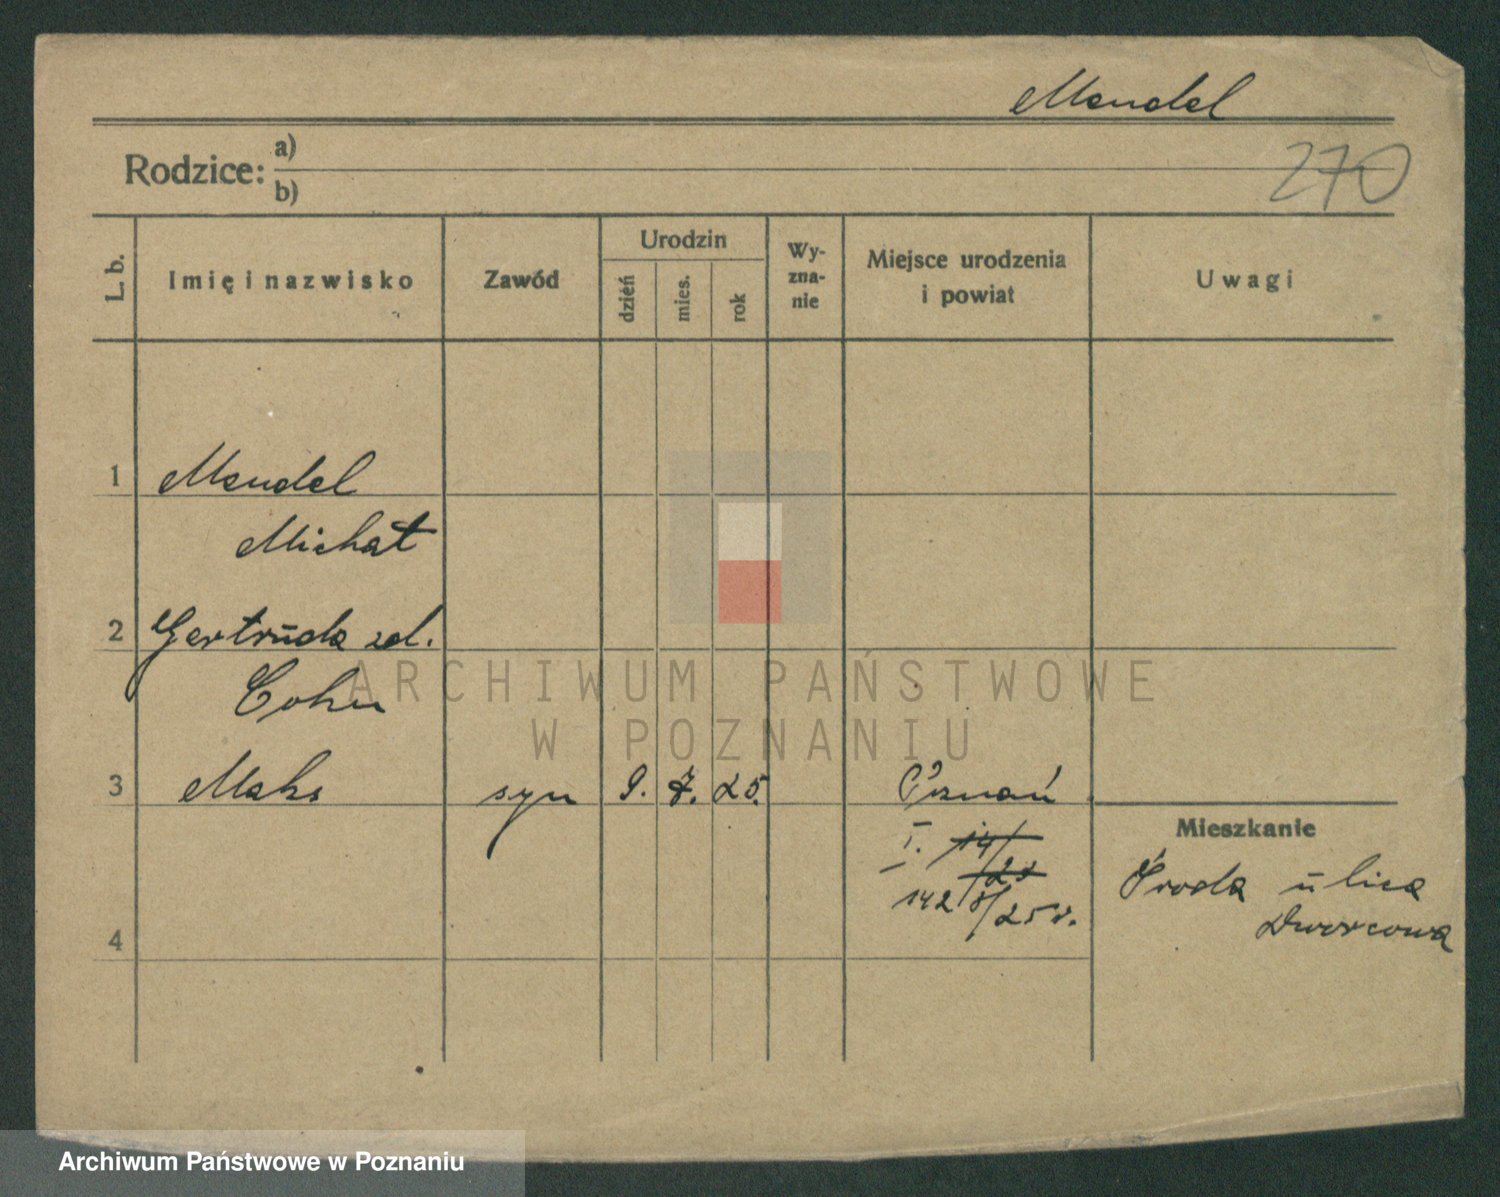 Mendel
270
Rodzice: a)
b)
L. b.
Imię i nazwisko
Zawód
Urodzin
dzień
mies.
rok
Wy-
zna-
nie
Miejsce urodzenia
i powiat
Uwagi
1 Mendel
Michał
2 Gertruda zd.
Cohn
3 Maks syn 9. 7. 25. Poznań
I. 14/
142 8/25 r.
4
Mieszkanie
Środa ulica
Dworcowa
ARCHIWUM PAŃSTWOWE
W POZNANIU
Archiwum Państwowe w Poznaniu